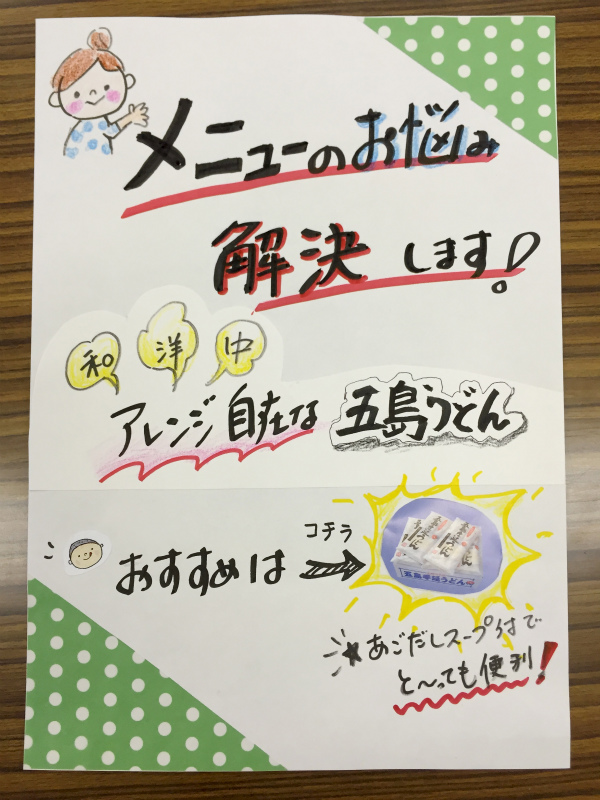 メニューのお悩み
解決します!
和 洋 中
アレンジ自在な 五島うどん
コチラ
おすすめは
五島手延うどん
あごだしスープ付で
と〜っても便利!